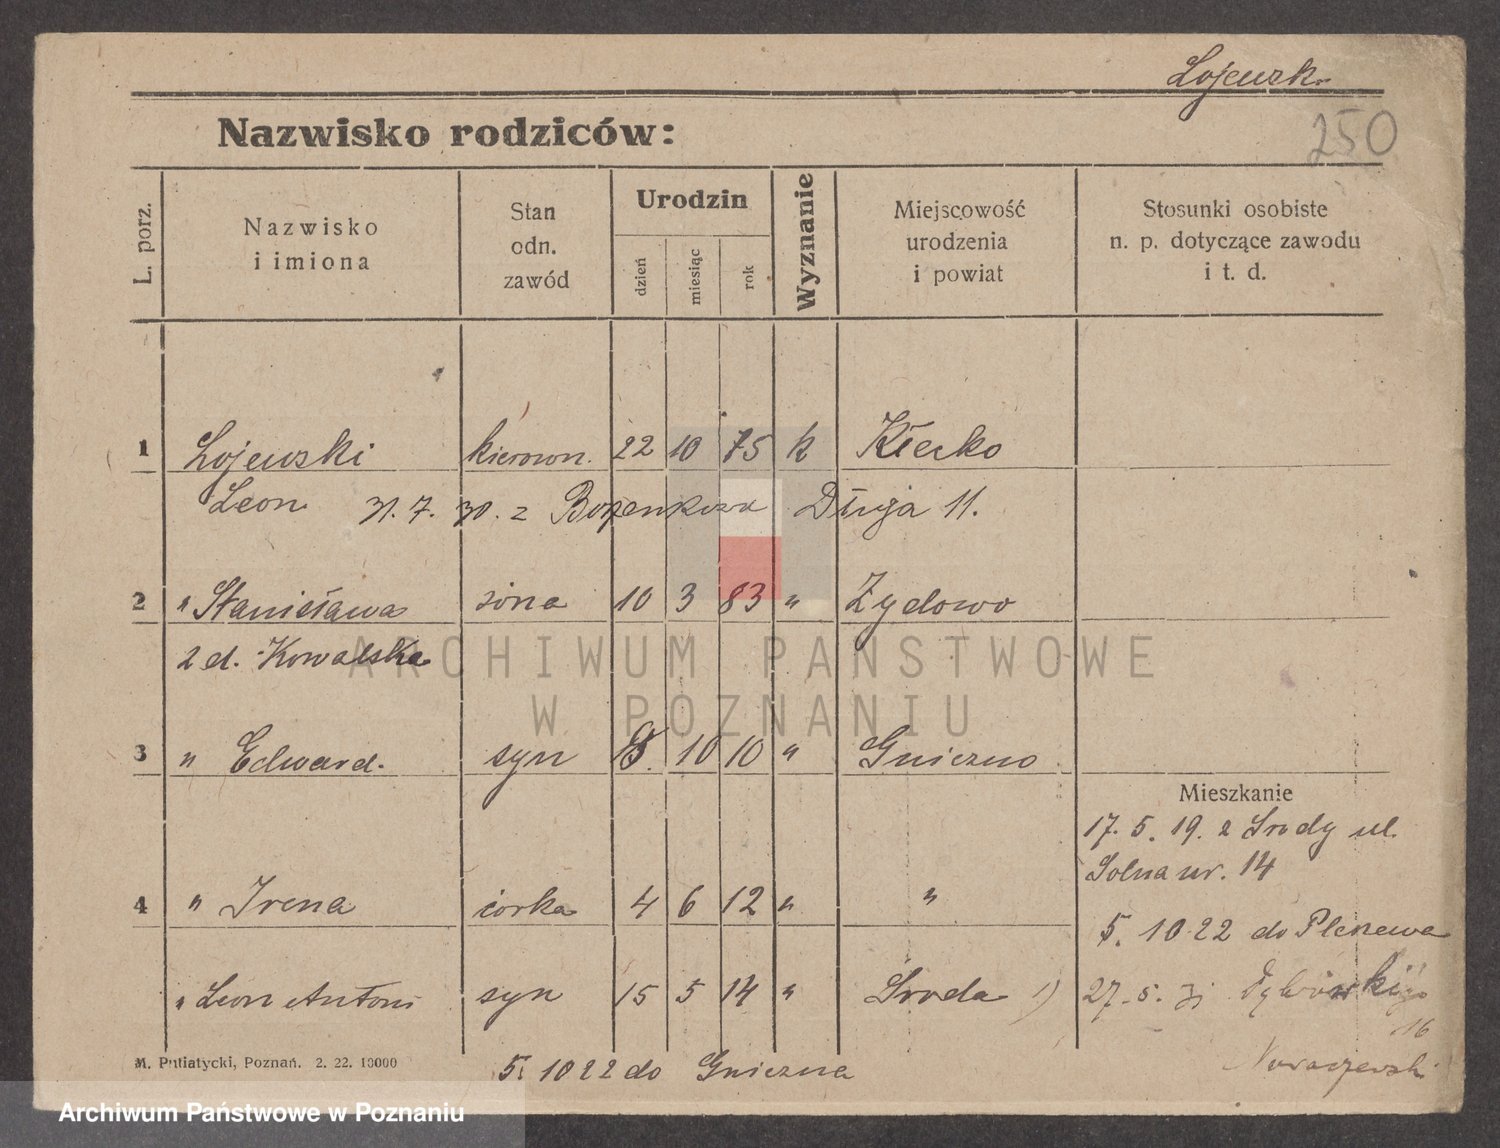 Łojewsk.
250
Nazwisko rodziców:
L. porz.
Nazwisko
i imiona
Stan
odn.
zawód
Urodzin
dzień
miesiąc
rok
Wyznanie
Miejscowość
urodzenia
i powiat
Stosunki osobiste
n. p. dotyczące zawodu
i t. d.
1 Łojewski kierown. 22 10 75 k Kłecko
Leon 31. 7. 30. z Długa 11.
2 " Stanisława żona 10 3 83 " Żydowo
z d. Kowalska
3 " Edward. syn 10 10 " Gniezno
Mieszkanie
17. 5. 19. z Środy ul.
Solna nr. 14
4 " Irena córka 4 6 12 " "
5. 10 22 do
" Leon Antoni syn 15 5 14 " Środa 1)
27. 5. 31
16
M. Putiatycki, Poznań. 2. 22. 10000
5. 10 22 do Gniezna
ARCHIWUM PAŃSTWOWE
W POZNANIU
Archiwum Państwowe w Poznaniu